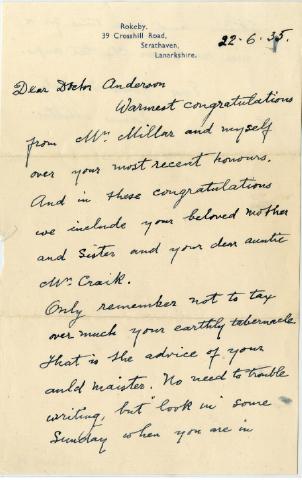 Rokeby,
39 Crosshill Road,
Strathaven,
Lanarkshire.
22-6-35.
Dear Doctor Anderson
Warmest congratulations
from Mrs Millar and myself
over your most recent honours.
And in these congratulations
we include your beloved mother
and sister and your dear auntie
Mrs Craik.
Only remember not to tax
over much your earthly tabernacle
That is the advice of your
auld maister. No need to trouble
writing, but "look in" some
Sunday when you are in